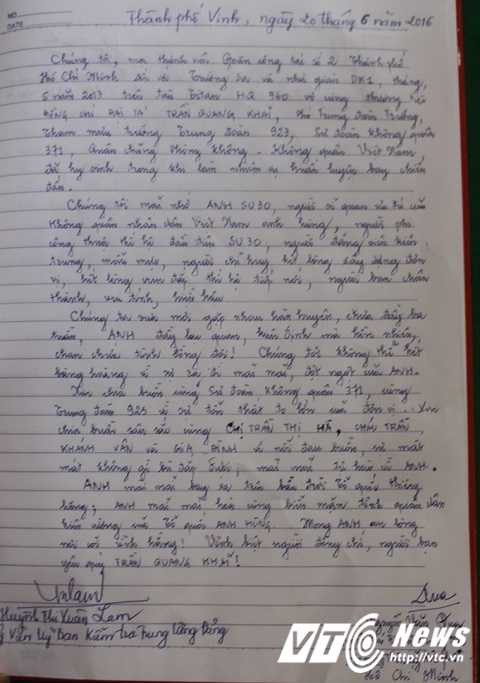 NO.
DATE
Thành phố Vinh, ngày 20 tháng 6 năm 2016
Chúng tôi, mọi thành viên Đoàn công tác số 2 Thành phố
Hồ Chí Minh đi với Trường Sa và nhà giàn DK1, tháng
5 năm 2013 trên tàu HQ 960 vô cùng thương tiếc
đồng chí ĐẠI TÁ TRẦN QUANG KHẢI, Phó Trung đoàn Trưởng,
tham mưu trưởng Trung đoàn 923, Sư đoàn Không quân
371, Quân chủng Phòng Không - Không quân Việt Nam
đã hy sinh trong khi làm nhiệm vụ huấn luyện bay chiến
đấu.
Chúng tôi mãi nhớ ANH SU30, người sĩ quan ưu tú của
Không quân nhân dân Việt Nam anh hùng, người phi
công thuộc thế hệ đầu tiên SU30, người đồng chí kiên
trung, mẫu mực, người chỉ huy hết lòng xây dựng đơn
vị, hết lòng vun đắp thế hệ tiếp nối, người bạn chân
thành, vui tính,
Chúng ta vừa mới gặp nhau hàn huyên, chưa đầy ba
tuần, ANH đầy lạc quan, kiên định mà hồn nhiên,
chan chứa tình đồng đội! Chúng tôi không thể hết
bàng hoàng vì sự ra đi mãi mãi, đột ngột của ANH.
Xin chia buồn cùng Sư đoàn Không quân 371, cùng
Trung đoàn 923 vì sự tổn thất to lớn của đơn vị. Xin
chia buồn sâu sắc cùng CHỊ TRẦN THỊ HÀ, CHÁU TRẦN
KHÁNH VÂN và GIA ĐÌNH vì nỗi đau buồn, sự mất
mát không gì bù đắp được; mãi mãi tự hào về ANH.
ANH mãi mãi bay trên bầu trời Tổ quốc thiêng
liêng; ANH mãi mãi hòa cùng biển mặn tình quân dân
của Tổ quốc ANH HÙNG. Mong ANH an lòng
nơi cõi vĩnh hằng! Vĩnh biệt người đồng chí, người bạn
yêu quý TRẦN QUANG KHẢI!
Huỳnh Thị Xuân Lam
Ủy Viên Uỷ Ban Kiểm tra Trung Ương Đảng
VTC News
http://vtc.vn
Hồ Chí Minh